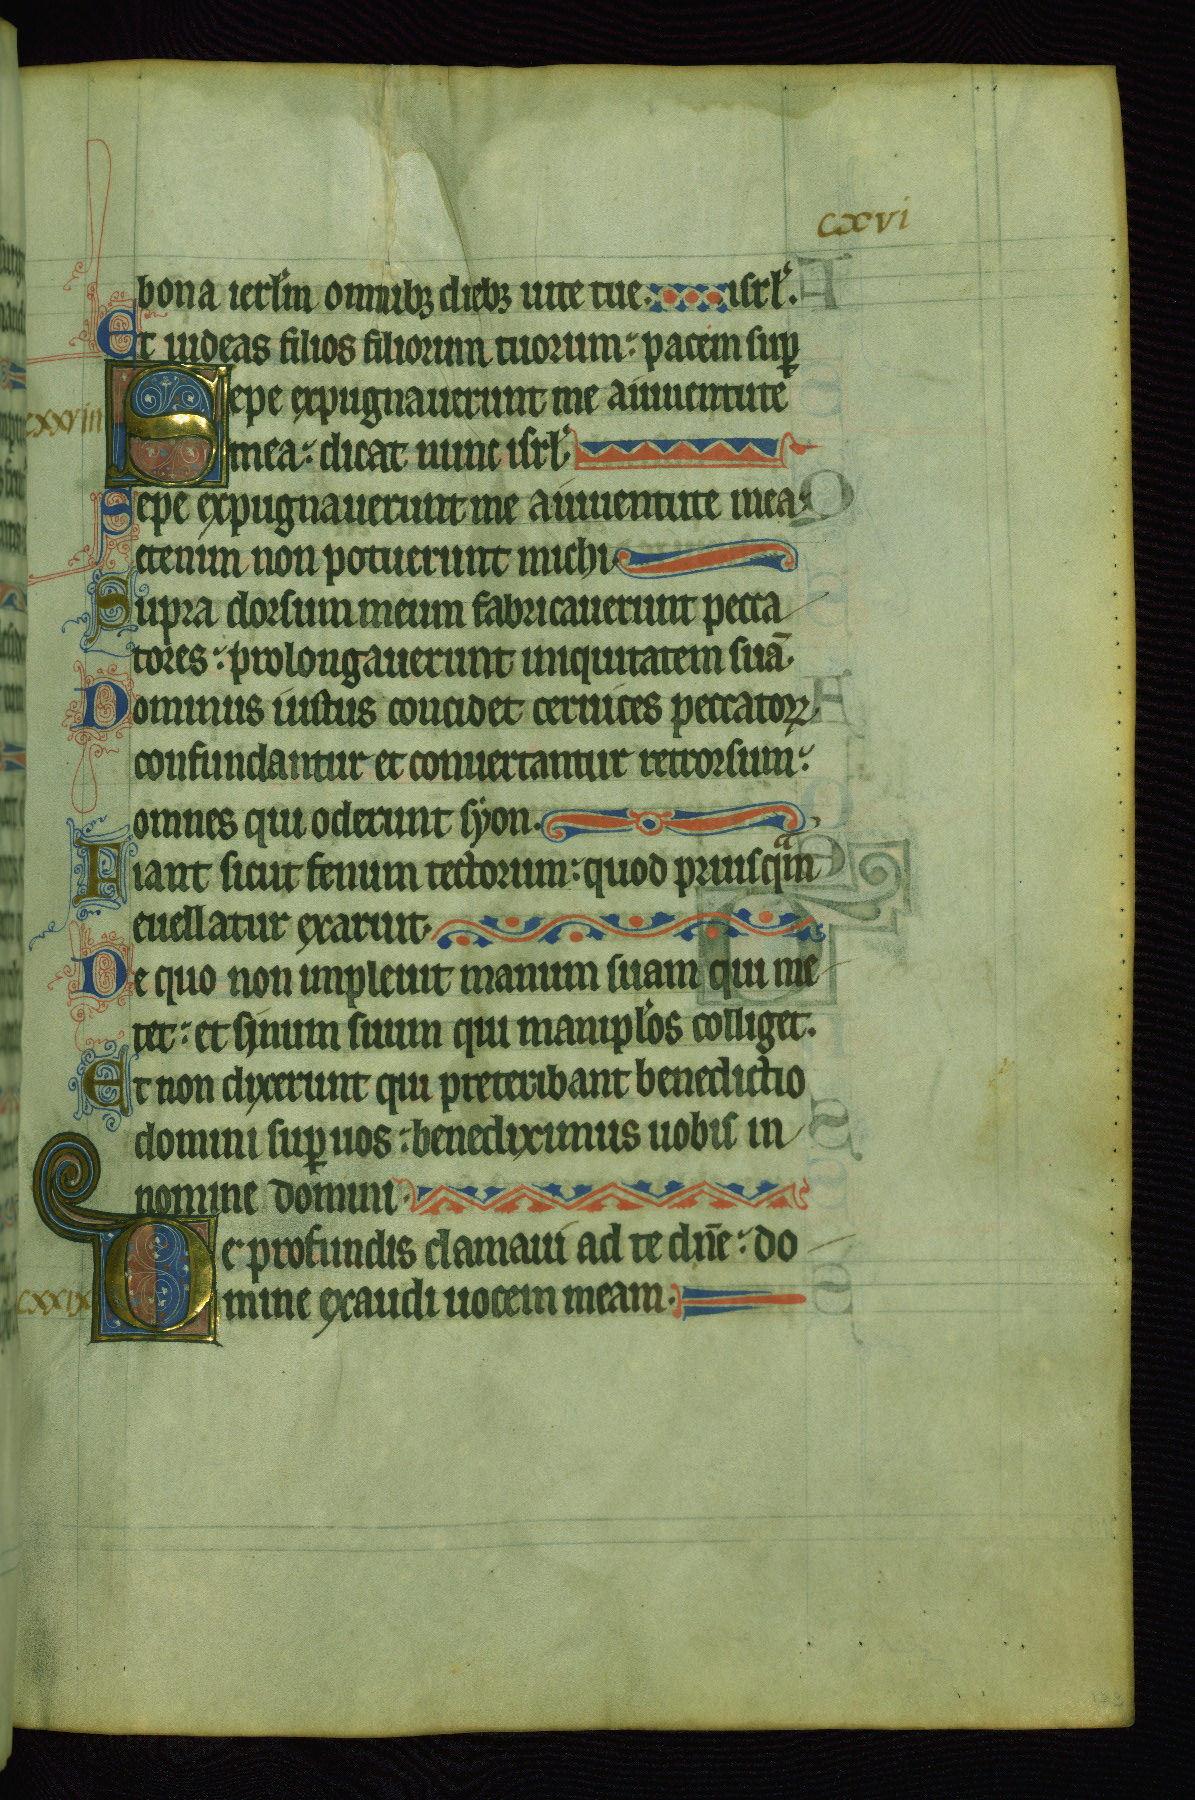 cxvi
bona ierl̃m omnibꝫ diebꝫ uite tue. isrl̾.
Et uideas filios filiorum tuorum : pacem sup̱
cxxviii
Sepe expugnauerunt me aiuuentute
mea : dicat nunc isrl̾.
Sepe expugnauerunt me aiuuentute mea :
etenim non potuerunt michi.
Supra dorsum meum fabricauerunt pecca
tores : prolongauerunt iniquitatem suã.
Dominus iustus concidet ceruices peccatoꝝ
confundantur et conuertantur retrorsum :
omnes qui oderunt syon.
Fiant sicut fenum tectorum : quod priusqᵃm
euellatur exaruit.
De quo non impleuit manum suam qui me
tet : et sinum suum qui manipl̾os colliget.
Et non dixerunt qui preteribant benedictio
domini sup̱ uos : benediximus uobis in
nomine domini.
cxxix
De profundis clamaui ad te dñe : do
mine exaudi uocem meam.